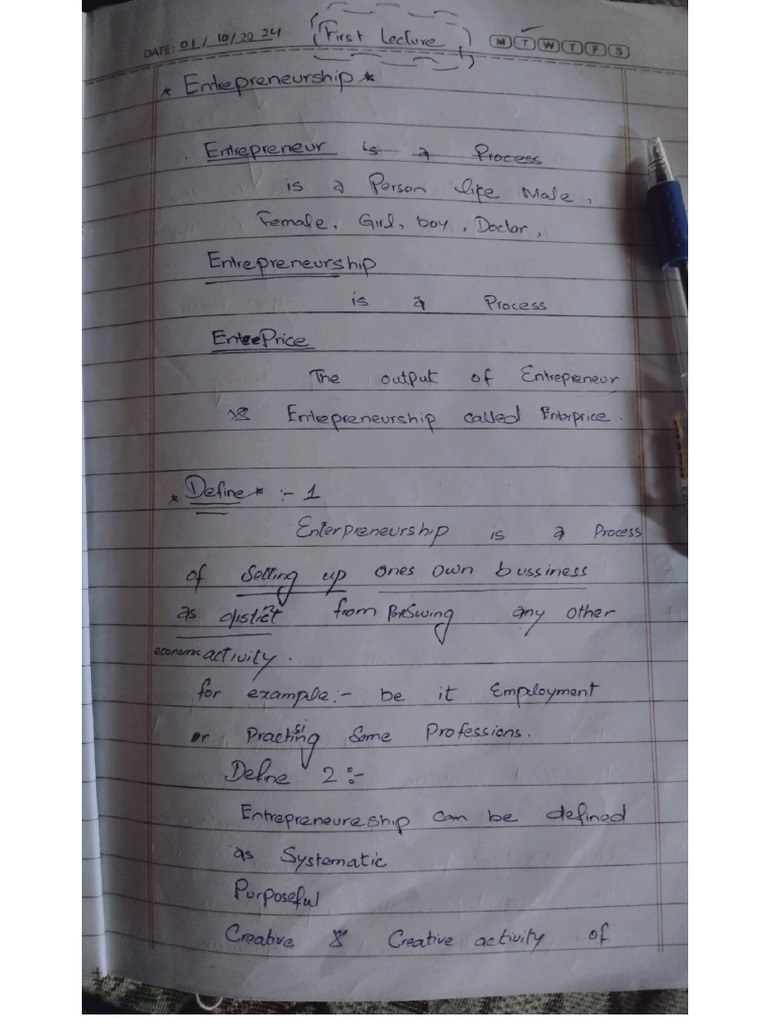 DATE: 01/10/2024 (First Lecture) M T W T F S
* Entrepreneurship *
Entrepreneur is a Process
is a Person life Male,
Female, Girl, boy, Doctor,
Entrepreneurship
is a Process
EntrePrice
The output of Entrepreneur
& Entrepreneurship called Enterprice.
* Define * :- 1
Enterpreneurship is a Process
of Setting up ones own bussiness
as distict from any other
economic activity.
for example:- be it Employment
or Practising Some Professions.
Define 2:-
Entrepreneureship can be defined
as Systematic
Purposeful
Creative & Creative activity of